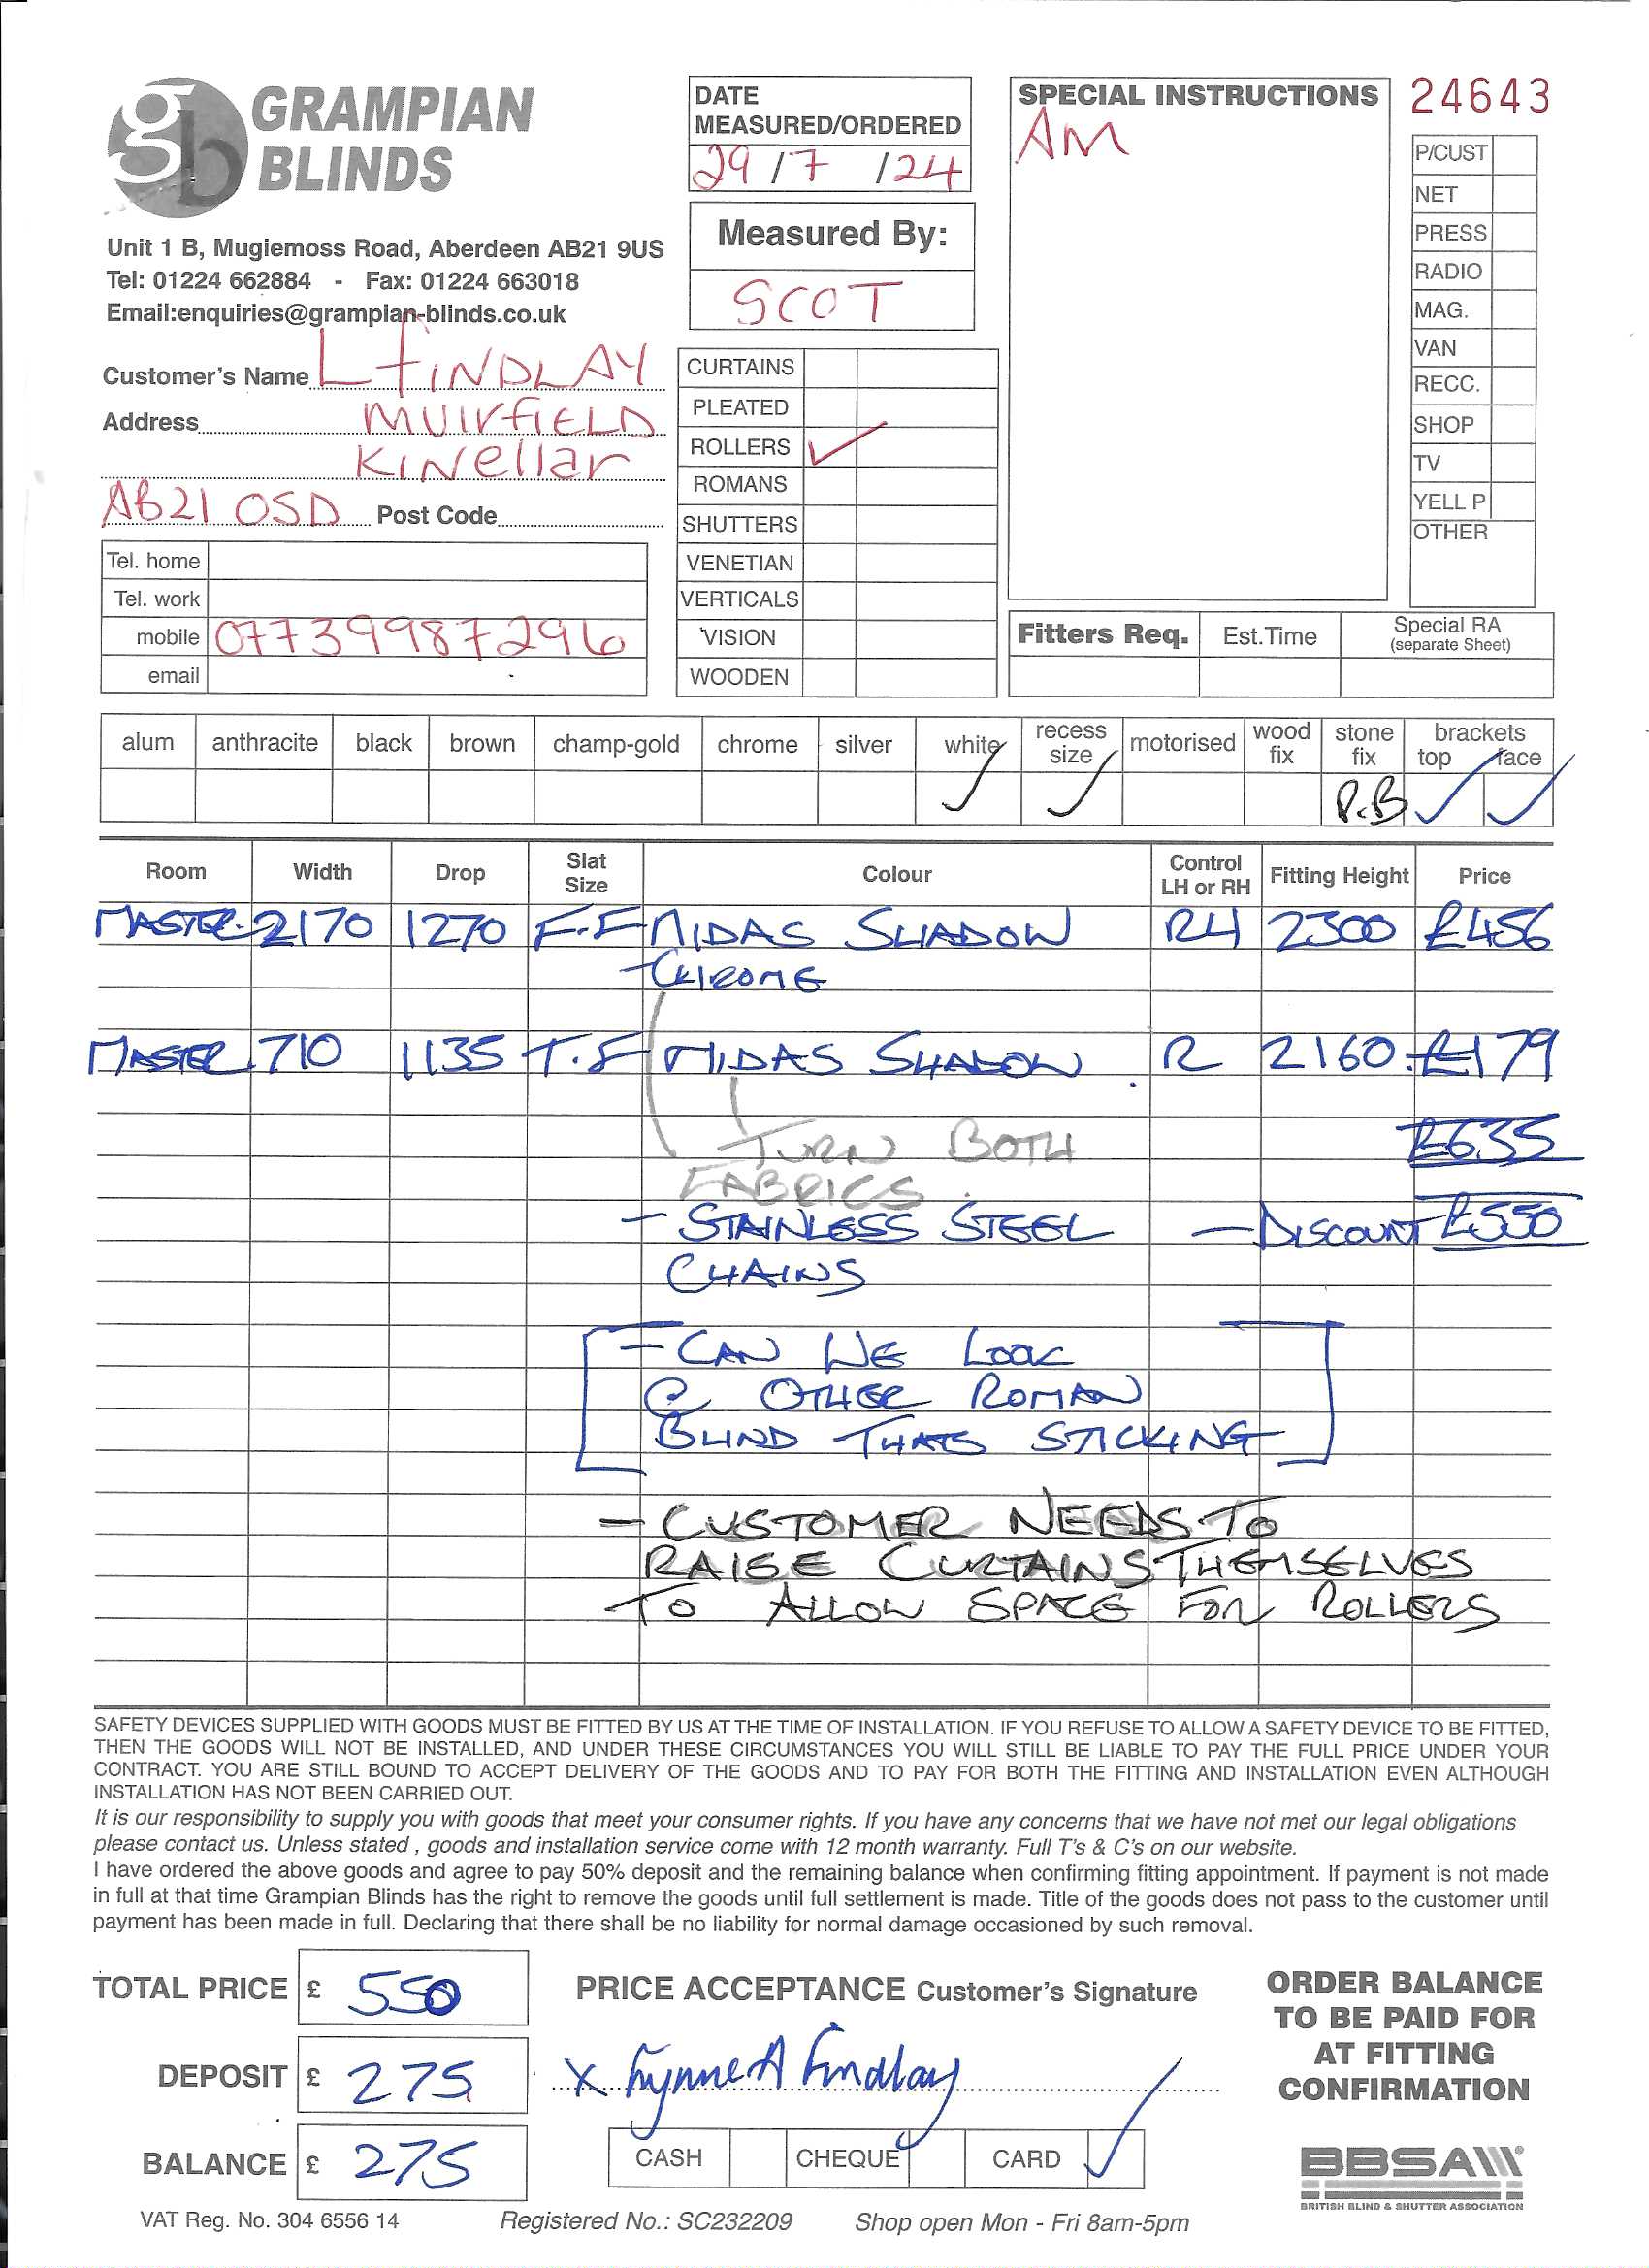 gb GRAMPIAN BLINDS
Unit 1 B, Mugiemoss Road, Aberdeen AB21 9US
Tel: 01224 662884 - Fax: 01224 663018
Email:enquiries@grampian-blinds.co.uk
Customer's Name L FINDLAY
Address MUIRFIELD
KINellar
AB21 0SD Post Code
Tel. home
Tel. work
mobile 077399987296
email
DATE
MEASURED/ORDERED
29/7/24
Measured By:
SCOT
CURTAINS
PLEATED
ROLLERS ✓
ROMANS
SHUTTERS
VENETIAN
VERTICALS
VISION
WOODEN
SPECIAL INSTRUCTIONS
AM
24643
P/CUST
NET
PRESS
RADIO
MAG.
VAN
RECC.
SHOP
TV
YELL P
OTHER
Fitters Req. Est.Time Special RA
(separate Sheet)
alum anthracite black brown champ-gold chrome silver white recess size motorised wood fix stone fix brackets top face
✓ ✓ P.B ✓ ✓
Room Width Drop Slat Size Colour Control LH or RH Fitting Height Price
MASTER 2170 1270 F.F MIDAS SHADOW RH 2300 £456
- CHROME
MASTER 710 1135 T.F MIDAS SHADOW R 2160 £179
TURN BOTH £635
FABRICS
- STAINLESS STEEL - DISCOUNT £550
CHAINS
- CAN WE LOOK
@ OTHER ROMAN
BLIND THATS STICKING
- CUSTOMER NEEDS TO
RAISE CURTAINS THEMSELVES
TO ALLOW SPACE FOR ROLLERS
SAFETY DEVICES SUPPLIED WITH GOODS MUST BE FITTED BY US AT THE TIME OF INSTALLATION. IF YOU REFUSE TO ALLOW A SAFETY DEVICE TO BE FITTED,
THEN THE GOODS WILL NOT BE INSTALLED, AND UNDER THESE CIRCUMSTANCES YOU WILL STILL BE LIABLE TO PAY THE FULL PRICE UNDER YOUR
CONTRACT. YOU ARE STILL BOUND TO ACCEPT DELIVERY OF THE GOODS AND TO PAY FOR BOTH THE FITTING AND INSTALLATION EVEN ALTHOUGH
INSTALLATION HAS NOT BEEN CARRIED OUT.
It is our responsibility to supply you with goods that meet your consumer rights. If you have any concerns that we have not met our legal obligations
please contact us. Unless stated , goods and installation service come with 12 month warranty. Full T's & C's on our website.
I have ordered the above goods and agree to pay 50% deposit and the remaining balance when confirming fitting appointment. If payment is not made
in full at that time Grampian Blinds has the right to remove the goods until full settlement is made. Title of the goods does not pass to the customer until
payment has been made in full. Declaring that there shall be no liability for normal damage occasioned by such removal.
TOTAL PRICE £ 550
DEPOSIT £ 275
BALANCE £ 275
PRICE ACCEPTANCE Customer's Signature
x Lynne A Findlay
CASH CHEQUE CARD ✓
ORDER BALANCE
TO BE PAID FOR
AT FITTING
CONFIRMATION
BBSA
BRITISH BLIND & SHUTTER ASSOCIATION
VAT Reg. No. 304 6556 14 Registered No.: SC232209 Shop open Mon - Fri 8am-5pm